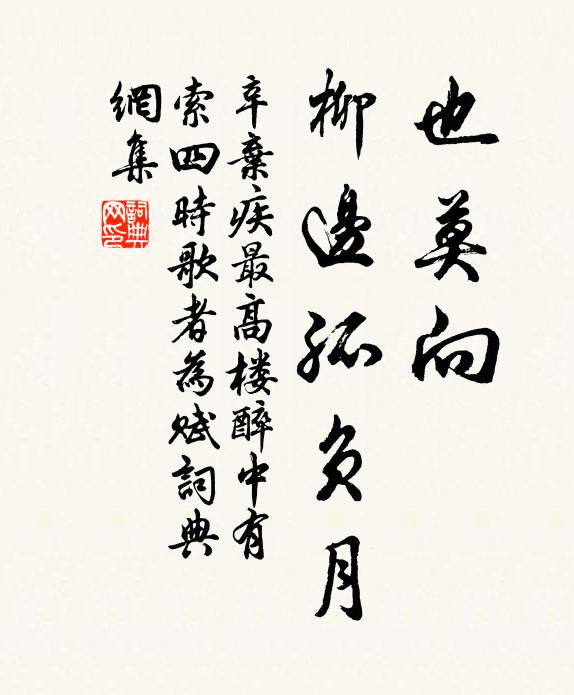 也莫向
柳邊孤负月
辛棄疾最高楼醉中有
索四時歌者為赋詞典
網集
詞典
网印